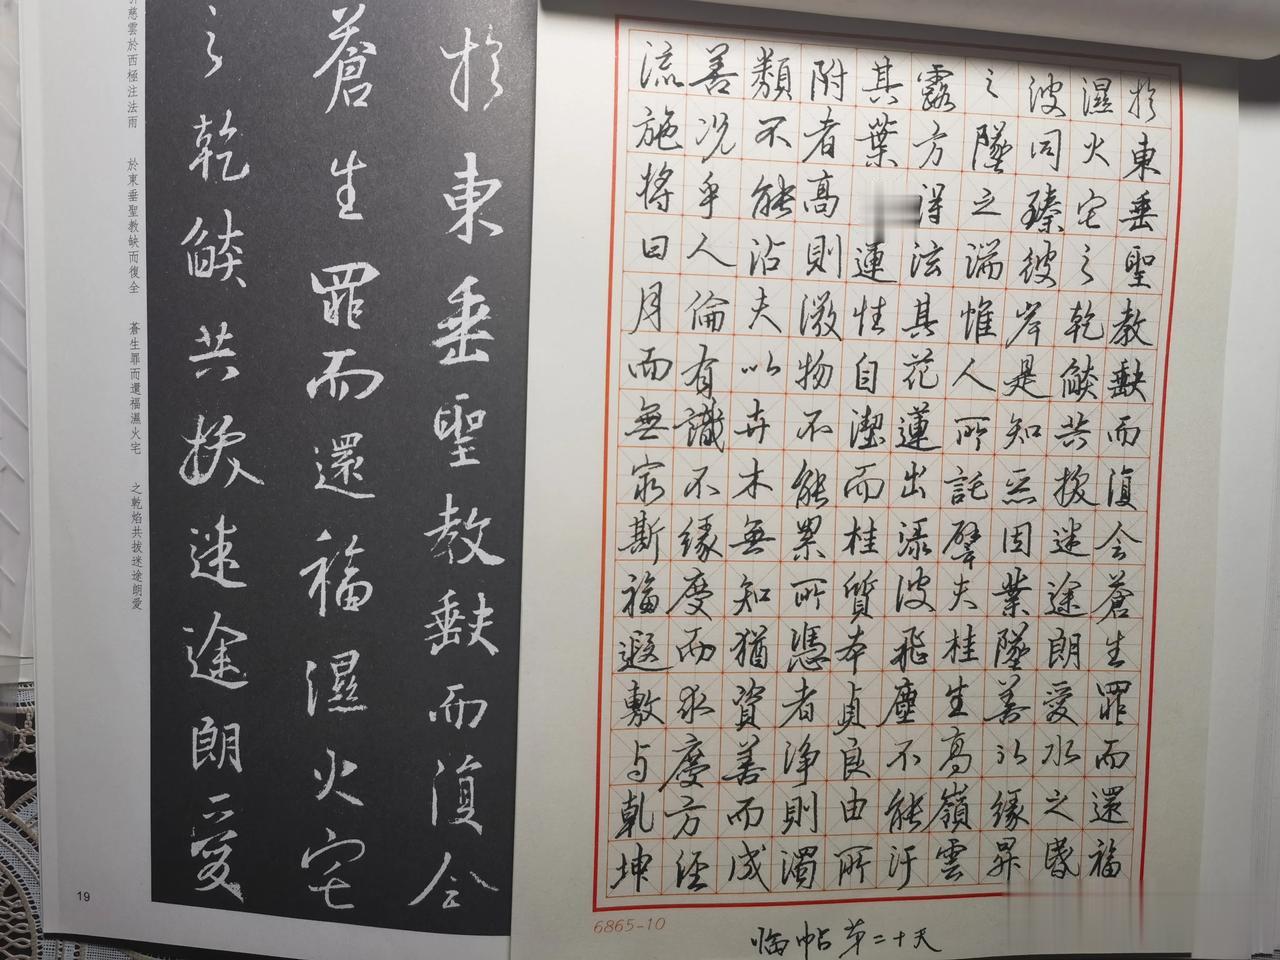 於東垂聖教缺而復全蒼生罪而還福
濕火宅之乾燄共拔迷途朗愛水之昏
波同臻彼岸是知惡因業墜善以緣昇
之墜之端惟人所託譬夫桂生高嶺雲
露方得泫其花蓮出淥波飛塵不能汙
其葉蓮性自潔而桂質本貞良由所
附者高則微物不能累所憑者淨則濁
類不能沾夫以卉木無知猶資善而成
善況乎人倫有識不緣慶而求慶方經
流施將日月而無窮斯福遐敷与乾坤
6865-10
临帖第二十天
於東垂聖教缺而復全
蒼生罪而還福濕火宅
之乾燄共拔迷途朗愛
慈雲於西極注法雨 於東垂聖教缺而復全 蒼生罪而還福濕火宅 之乾焰共拔迷途朗愛
19